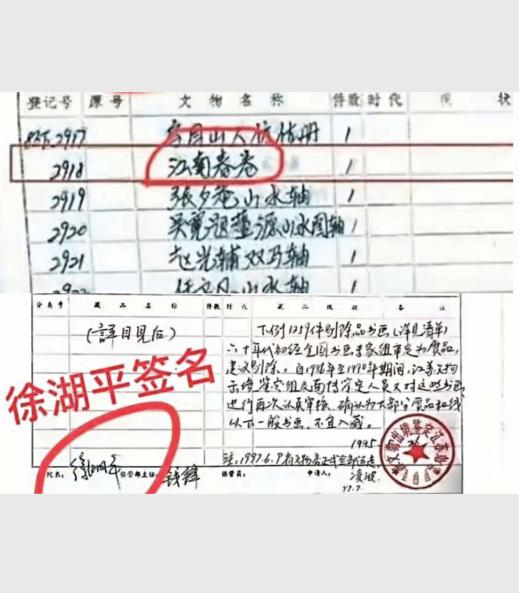 登记号 原号 文物名称 件数 时代 状
2917 1
2918 江南春卷 1
2919 张夕庵山水轴 1
2920 山水图轴 1
2921 赵光辅双马轴 1
山水轴
分类号 藏品名称 件数 时代 藏品现状 备注
(详目见后) 下列1259件剔除品书画(详见清单)
六十年代初经全国书画专家组审定为
建议剔除。自1986年至1990年期间,江苏文物
出境鉴定组及南博鉴定人员又对这些书画
进行再次认真审核、确认为大部分赝品和
以下一般书画,不宜入藏。
1995
徐湖平签名
院长: 徐湖平 保管部主任: 钱锋 保管员: 申请人: 凌波
97.7.